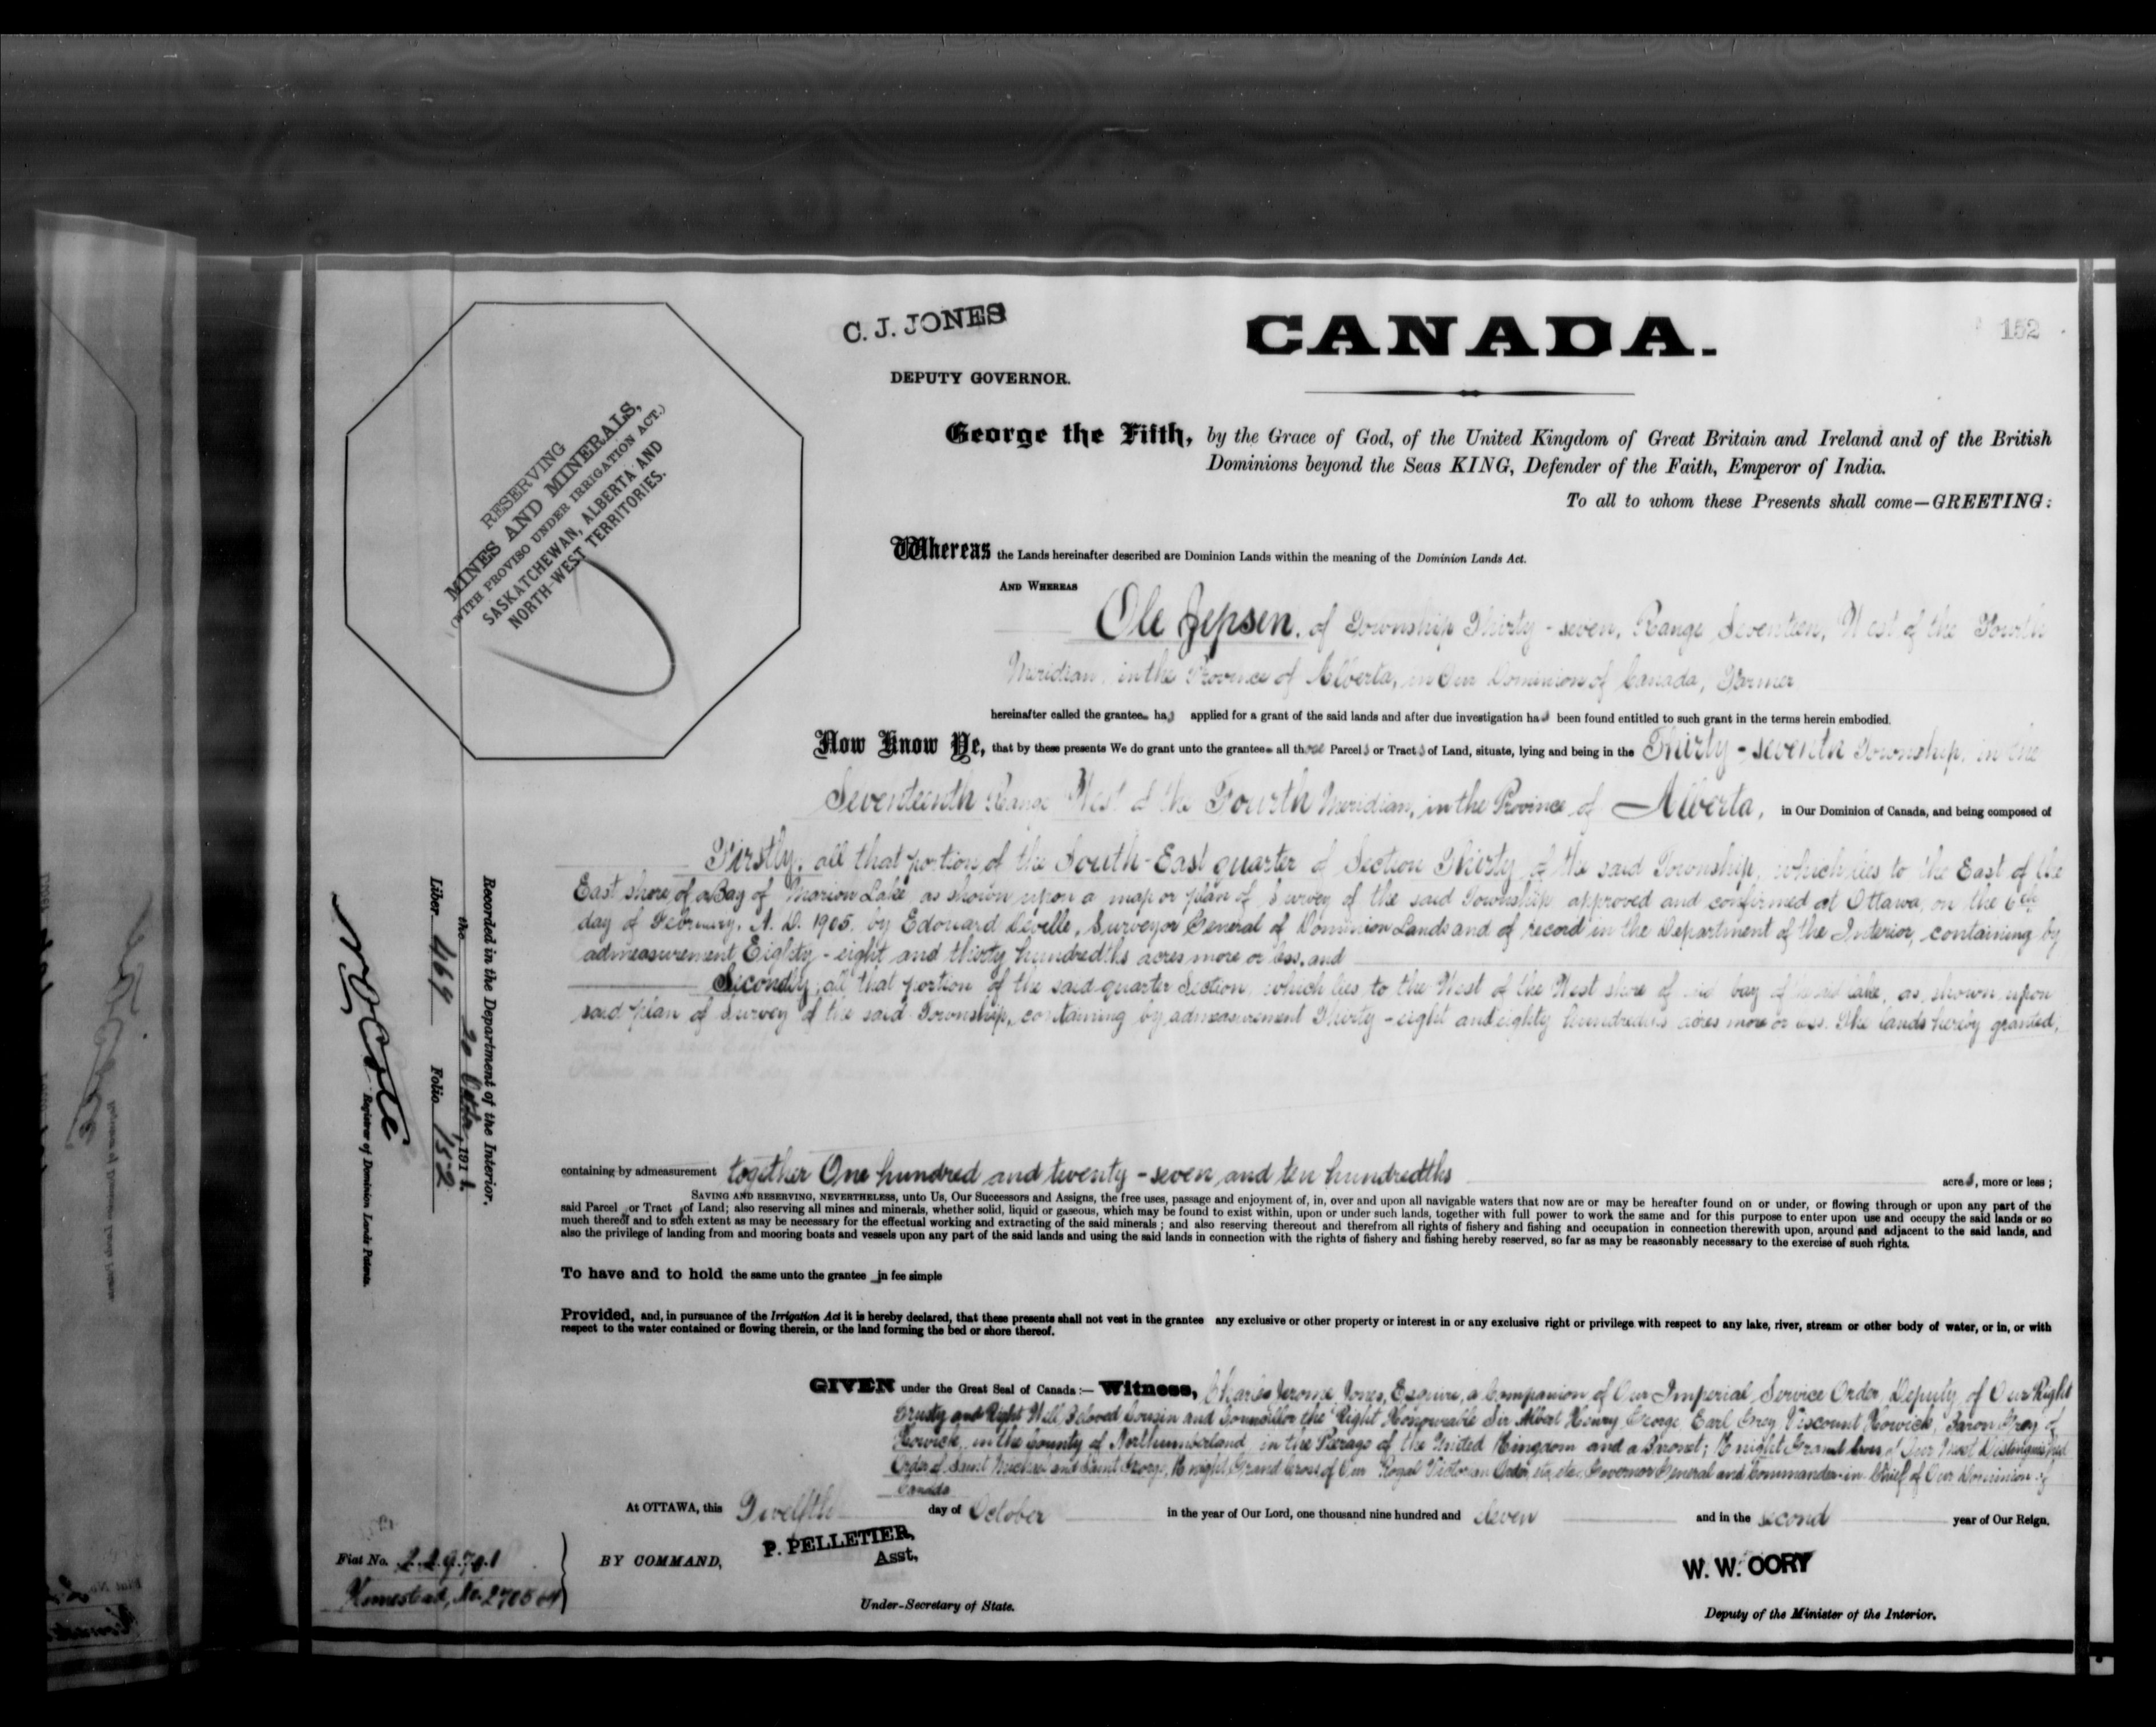 C. J. JONES
DEPUTY GOVERNOR.
CANADA.
152
RESERVING
MINES AND MINERALS,
(WITH PROVISO UNDER IRRIGATION ACT.)
SASKATCHEWAN, ALBERTA AND
NORTH-WEST TERRITORIES.
George the Fifth, by the Grace of God, of the United Kingdom of Great Britain and Ireland and of the British
Dominions beyond the Seas KING, Defender of the Faith, Emperor of India.
To all to whom these Presents shall come—GREETING:
Whereas the Lands hereinafter described are Dominion Lands within the meaning of the Dominion Lands Act.
AND WHEREAS
Ole Jepsen, of Township Thirty-seven, Range Seventeen, West of the Fourth
Meridian, in the Province of Alberta, in Our Dominion of Canada, Farmer
hereinafter called the grantee has applied for a grant of the said lands and after due investigation has been found entitled to such grant in the terms herein embodied.
Now Know Ye, that by these presents We do grant unto the grantee all those Parcels or Tracts of Land, situate, lying and being in the Thirty-seventh Township, in the
Seventeenth Range West of the Fourth Meridian, in the Province of Alberta, in Our Dominion of Canada, and being composed of
Firstly, all that portion of the South-East quarter of Section Thirty of the said Township, which lies to the East of the
East shore of a Bay of Marion Lake as shown upon a map or plan of Survey of the said Township approved and confirmed at Ottawa, on the 6th
day of February, A. D. 1905, by Edouard Deville, Surveyor General of Dominion Lands and of record in the Department of the Interior, containing by
admeasurement Eighty-eight and thirty hundredths acres more or less, and
Secondly, all that portion of the said quarter Section, which lies to the West of the West shore of said bay of said lake, as shown upon
said plan of Survey of the said Township, containing by admeasurement Thirty-eight and eighty hundredths acres more or less. The lands hereby granted,
containing by admeasurement together One hundred and twenty-seven and ten hundredths acres, more or less;
SAVING AND RESERVING, NEVERTHELESS, unto Us, Our Successors and Assigns, the free uses, passage and enjoyment of, in, over and upon all navigable waters that now are or may be hereafter found on or under, or flowing through or upon any part of the
said Parcel or Tract of Land; also reserving all mines and minerals, whether solid, liquid or gaseous, which may be found to exist within, upon or under such lands, together with full power to work the same and for this purpose to enter upon use and occupy the said lands or so
much thereof and to such extent as may be necessary for the effectual working and extracting of the said minerals; and also reserving thereout and therefrom all rights of fishery and fishing and occupation in connection therewith upon, around and adjacent to the said lands, and
also the privilege of landing from and mooring boats and vessels upon any part of the said lands and using the said lands in connection with the rights of fishery and fishing hereby reserved, so far as may be reasonably necessary to the exercise of such rights.
To have and to hold the same unto the grantee in fee simple
Provided, and, in pursuance of the Irrigation Act it is hereby declared, that these presents shall not vest in the grantee any exclusive or other property or interest in or any exclusive right or privilege with respect to any lake, river, stream or other body of water, or in, or with
respect to the water contained or flowing therein, or the land forming the bed or shore thereof.
GIVEN under the Great Seal of Canada:— Witness, Charles Jerome Jones, Esquire, a Companion of Our Imperial Service Order, Deputy of Our Right
Trusty and Right Well Beloved Cousin and Councillor the Right Honourable Sir Albert Henry George, Earl Grey, Viscount Howick, Baron Grey of
Howick, in the County of Northumberland, in the Peerage of the United Kingdom and a Baronet; Knight Grand Cross of Our Most Distinguished
Order of Saint Michael and Saint George, Knight Grand Cross of Our Royal Victorian Order, etc, etc. Governor General and Commander-in-Chief of Our Dominion of
Canada
At OTTAWA, this Twelfth day of October in the year of Our Lord, one thousand nine hundred and eleven and in the second year of Our Reign.
BY COMMAND,
P. PELLETIER,
Asst,
Under-Secretary of State.
W. W. CORY
Deputy of the Minister of the Interior.
Fiat No. 229701
Homestead, No. 270564
Recorded in the Department of the Interior,
the 20 Octbr, 1911.
Liber 469 Folio 152
N O Cote
Registrar of Dominion Lands Patents.